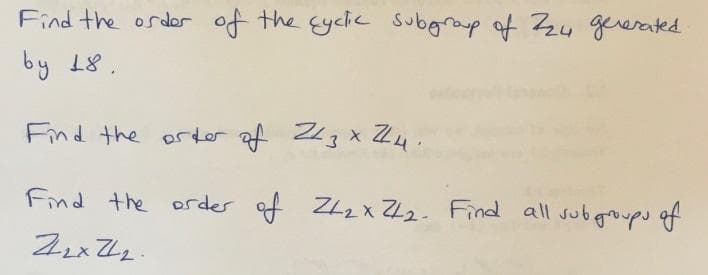 Find the order of the cyclic subgroup of ℤ₂₄ generated
by 18.
Find the order of ℤ₃ × ℤ₄.
Find the order of ℤ₂ × ℤ₂. Find all subgroups of
ℤ₂ × ℤ₂.